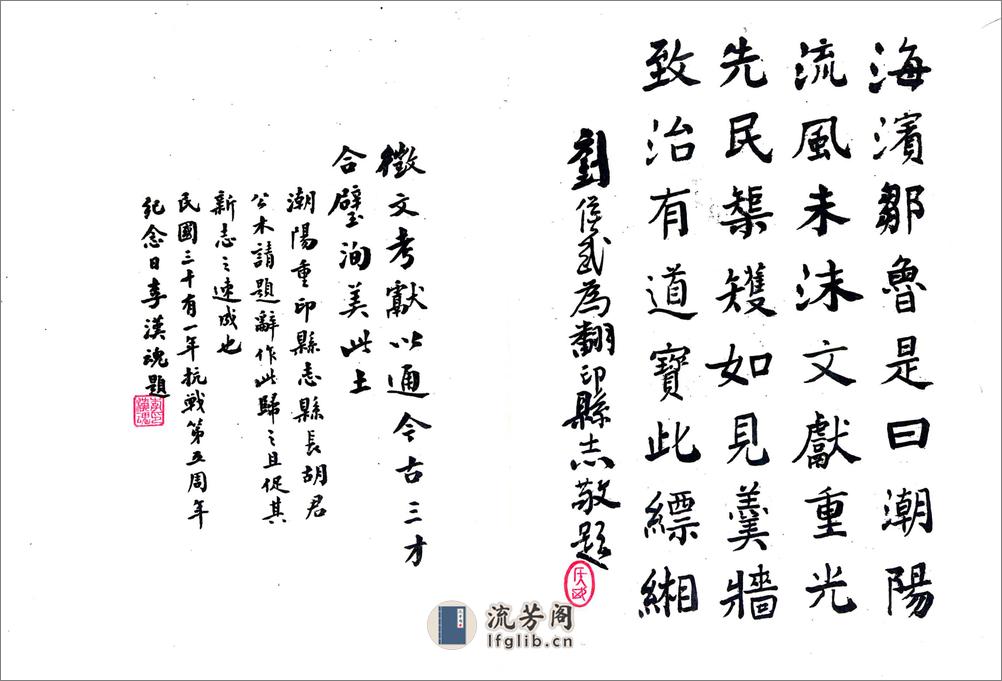 海濱鄒魯是曰潮陽
流風未沬文獻重光
先民榘矱如見羹牆
致治有道寶此縹緗
劉侯武為翻印縣志敬題
徵文考獻以通今古三才
合璧洵美此土
潮陽重印縣志縣長胡君
公木請題辭作此歸之且促其
新志之速成也
民國三十有一年抗戰第五周年
紀念日李漢魂題
流芳阁
lfglib.cn